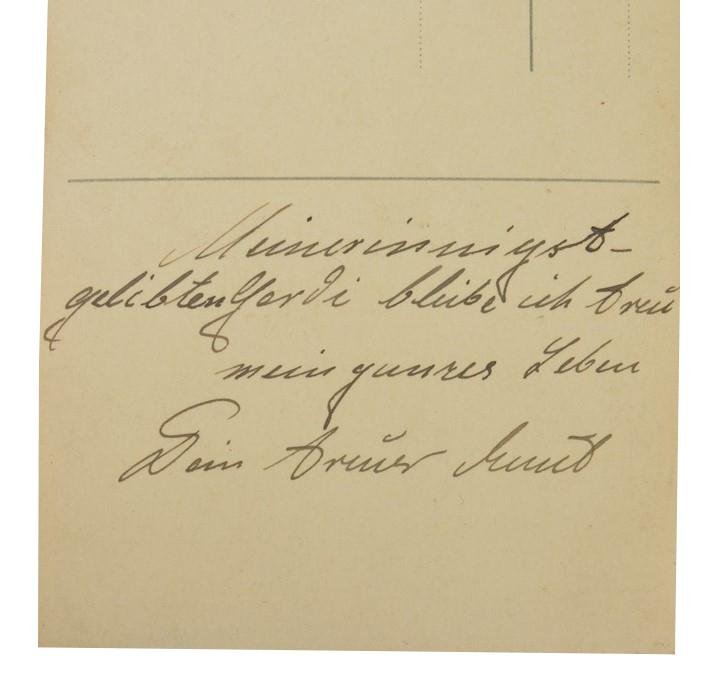 Meinerinnigst-
gelibten Gerdi bleibe ich treu
mein ganzes Leben
Dein treuer